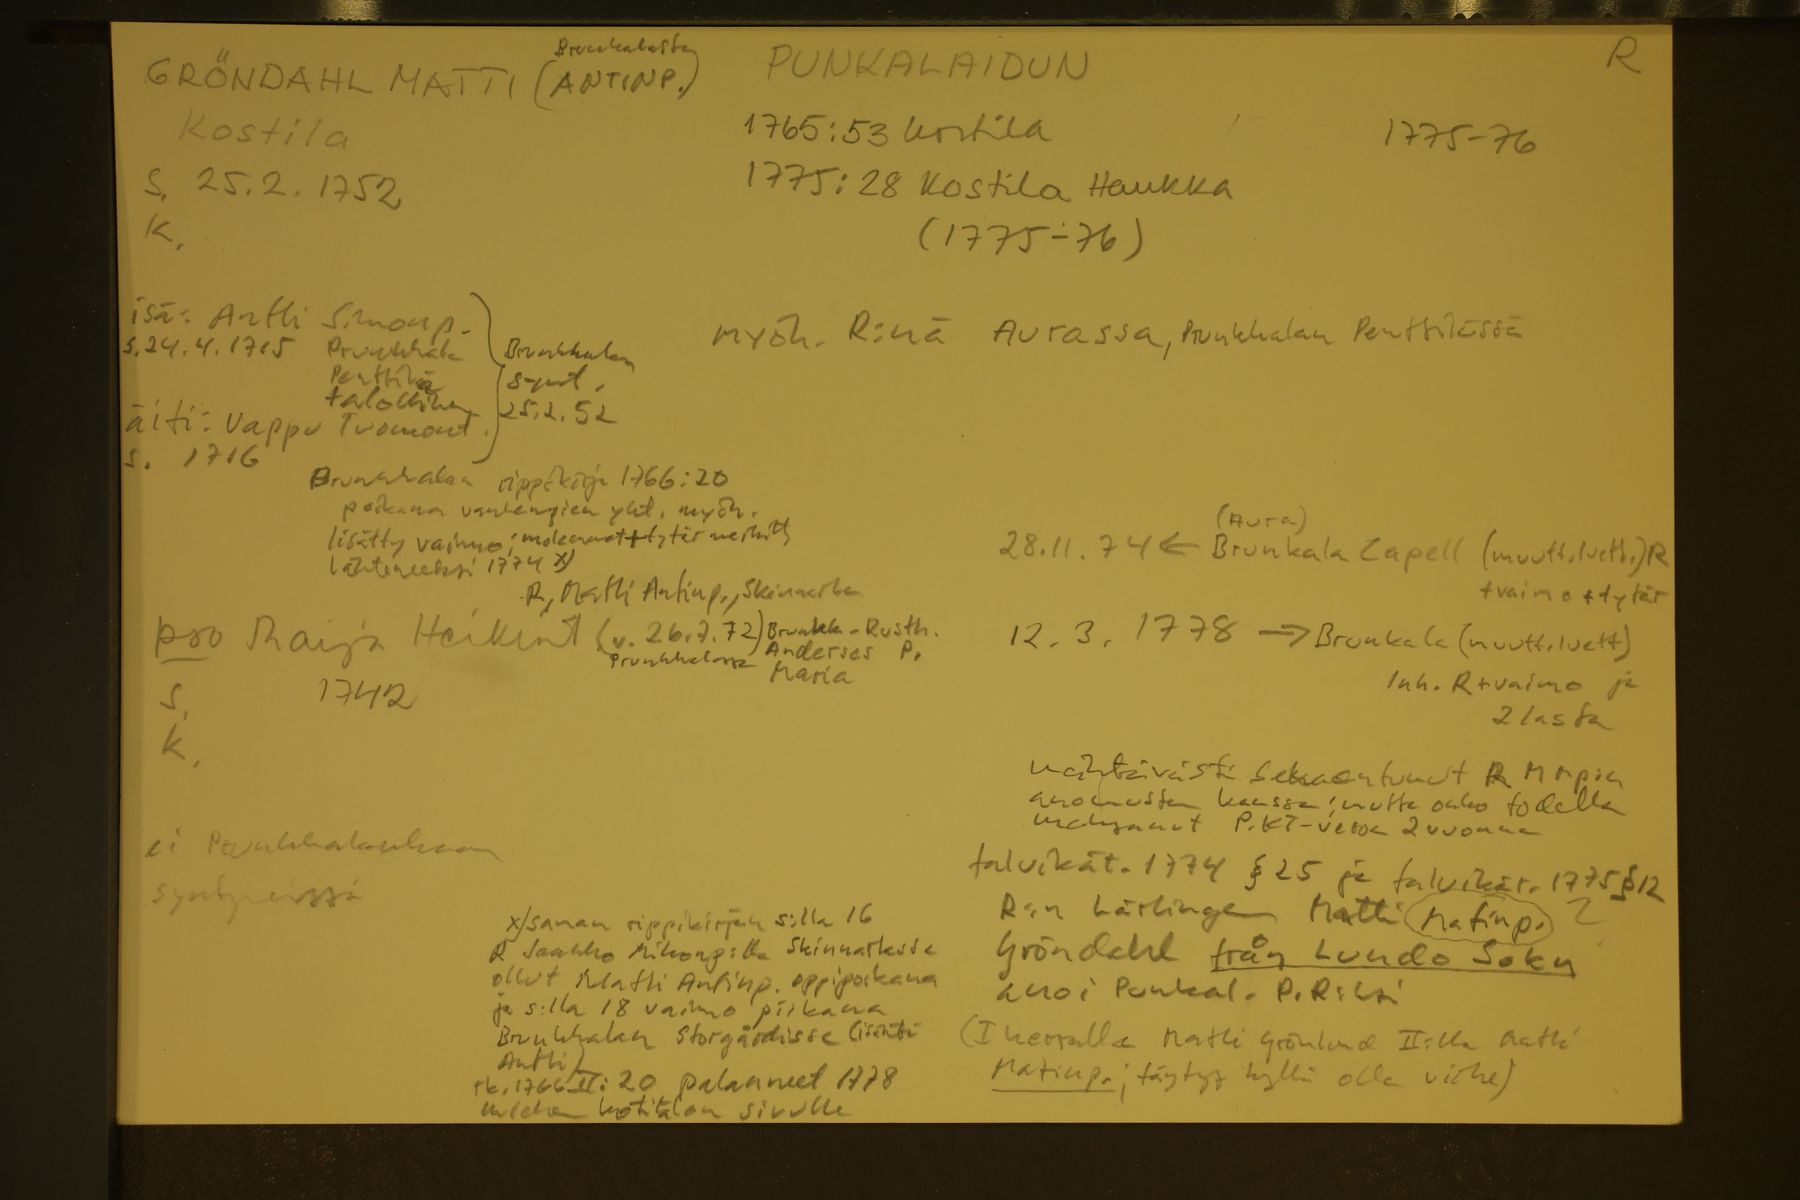 Brunkalassa
GRÖNDAHL MATTI (ANTINP.)
Kostila
s. 25.2. 1752
k.
PUNKALAIDUN
R
1765:53 Kostila
1775:28 Kostila Haukka
(1775-76)
1775-76
isä: Antti Simonp.
s. 24.4.1715 Prunkkala
Penttilä
talollinen
äiti: Vappu Tuomont.
s. 1716
Brunkkalan
synt.
25.2.52
myöh. R:nä Aurassa, Prunkkalan Penttilässä
Brunkkalan rippikirja 1766:20
poikana vanhempien yht. myöh.
lisätty vaimo; molemmat + tytär merkitty
lähteneeksi 1774 x)
R, Matti Antinp., Skinnarla
pso Maija Heikint (v. 26.7.72)
Prunkkalassa
Brunkk. Rusth.
Anderses P.
Maria
s. 1742
k.
ei Prunkkalankaan
syntyneissä
(Aura)
28.11.74 ← Brunkala Capell (muutt.luett.) R
+vaimo + tytär
12.3.1778 → Brunkala (muutt.luett)
Inh. R+vaimo ja
2 lasta
nähtävästi sekaantunut R M
kanssa; mutta onko todella
maksanut P.KT-veroa 2 vuonna
talvikär. 1774 § 25 ja talvikär. 1775 § 12
R:n Lärlingen Matti (Matinp.) ?
Gröndahl från Lundo Sokn
anoi Punkal. P.R:ksi
(I kerralla Matti Grönlund II:lla Matti
Matinp.; täytyy kyllä olla virhe)
x/saman rippikirjan s:lla 16
R Jaakko Mikonp:lla Skinnarlassa
ollut Matti Antinp. oppipoikana
ja s:lla 18 vaimo piikana
Brunkkalan Storgårdissa (isäntä
Antti)
rk. 1766 II:20 palanneet 1778
miehen kotitalon sivulle